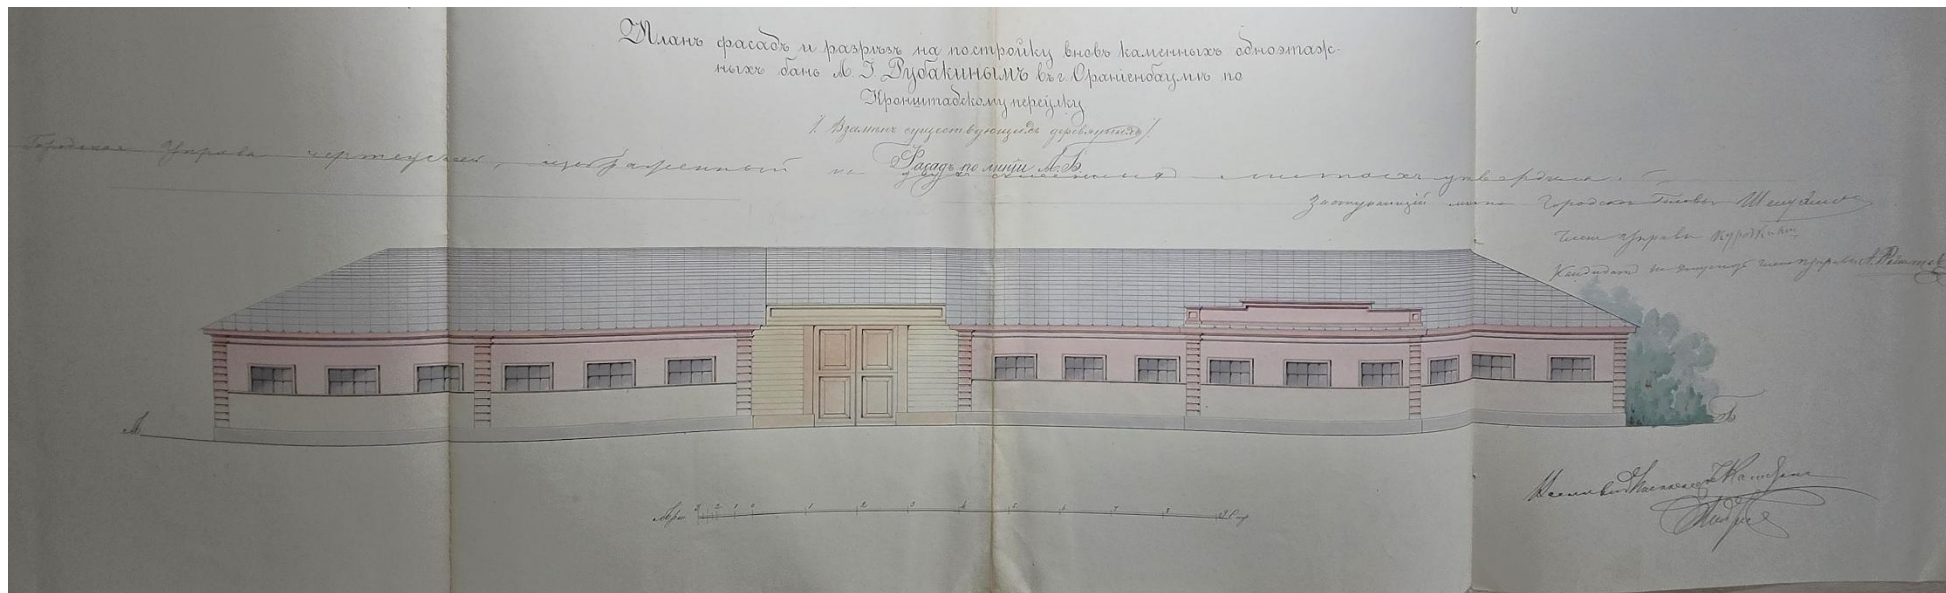 Планъ фасадъ и разрѣзъ на постройку вновь каменныхъ одноэтаж-
ныхъ бань М. І. Рубакинымъ въ г. Ораніенбаумѣ по
Кронштадскому переулку
/. Взамѣнъ существующихъ деревянныхъ /.
Фасадъ по линіи А. Б.
Городская Управа чертежъ, изображенный на двухъ листахъ утвердила.
Заступающій мѣсто Городского Головы
Членъ Управы Курочкинъ
Кандидатъ Члена Управы
А.
Б
2 1 0 1 2 3 4 5 6 7 8